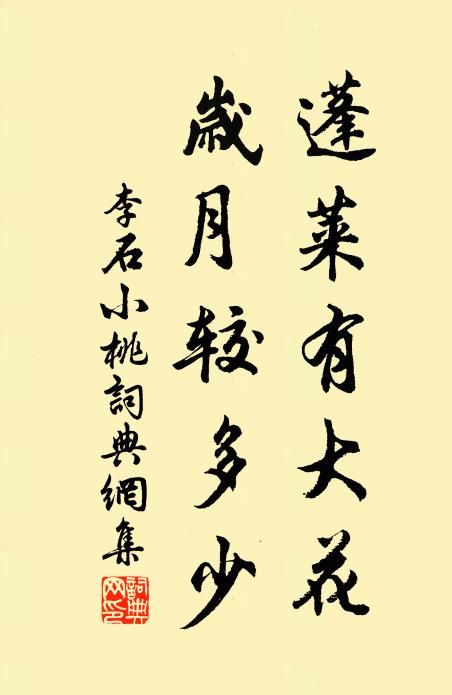 蓬萊有大花
歲月较多少
李石小桃詞典網集
詞典网印